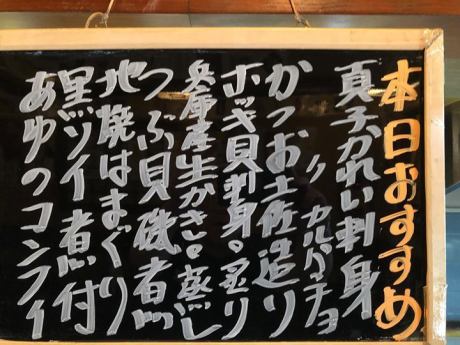 本日おすすめ
真子かれい刺身
〃 カルパチョ
かつお土佐造り
ホッキ貝刺身。炙り
兵庫産生かき。蒸し
つぶ貝磯煮
地焼はまぐり
黒ソイ煮付
あゆのコンフィ